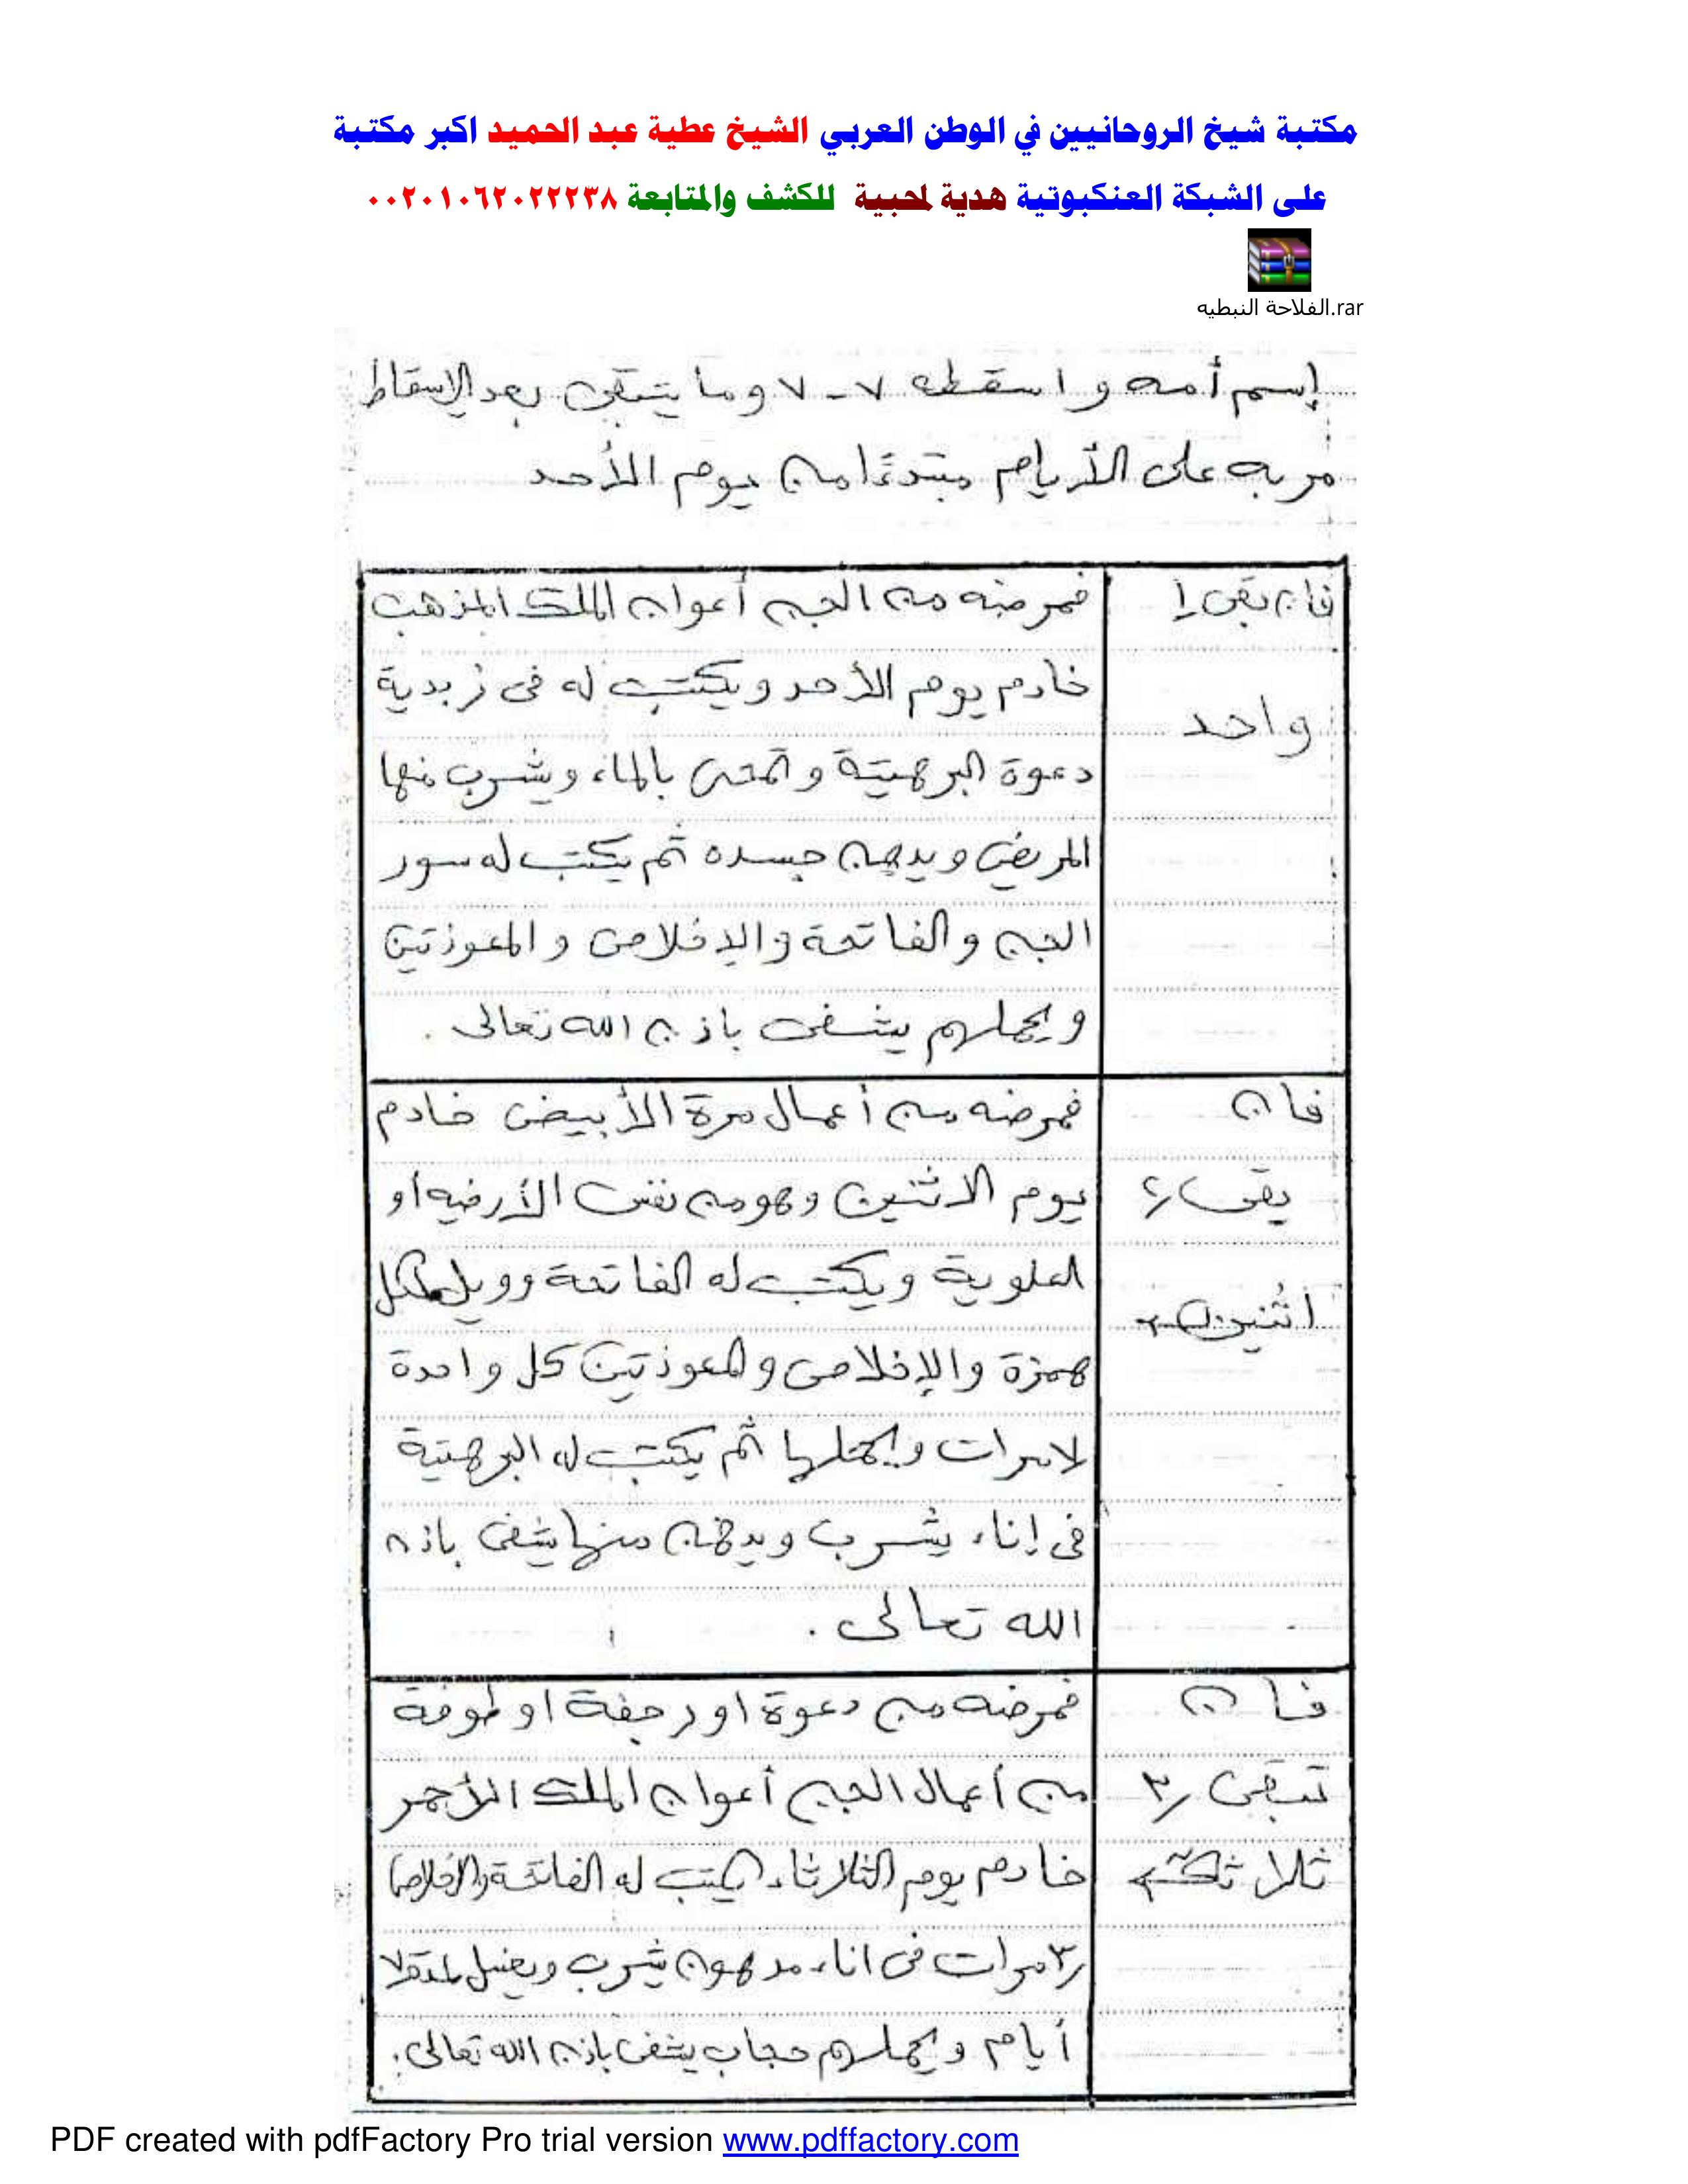 مكتبة شيخ الروحانيين في الوطن العربي الشيخ عطية عبد الحميد اكبر مكتبة
على الشبكة العنكبوتية هدية لمحبيه للكشف والمتابعة ٠٠٢٠١٠٦٢٠٢٢٢٣٨
الفلاحة النبطيه.rar
إسم أمه واسقطه ٧-٧ وما يتبقى بعد الإسقاط
مر به على الأيام مبتدءًا من يوم الأحد
فان بقى ١
واحد
فمرضه من الجن أعوان الملك المذهب
خادم يوم الأحد ويكتب له فى زبدية
دعوة البرهتية وتمحى بالماء ويشرب منها
المريض ويدهن جسده ثم يكتب له سور
الجن والفاتحة والإخلاص والمعوذتين
ويحملهم يشفى باذن الله تعالى .
فان
بقى ٢
اثنين
فمرضه من أعمال مرة الأبيض خادم
يوم الاثنين وهو من نفس الأرضيه أو
العلوية ويكتب له الفاتحة وويل لكل
همزة والإخلاص والمعوذتين كل واحدة
٧ مرات ويحملها ثم يكتب له البرهتية
فى إناء يشرب ويدهن منها يشفى باذن
الله تعالى .
فان
تبقى ٣
ثلاثة
فمرضه من دعوة او رجفة او طوفة
من أعمال الجن أعوان الملك الأحمر
خادم يوم الثلاثاء يكتب له الفاتحة والإخلاص
٣ مرات فى اناء مدهون يشرب ويغسل لمدة ٧
أيام ويحملهم حجاب يشفى باذن الله تعالى .
PDF created with pdfFactory Pro trial version www.pdffactory.com